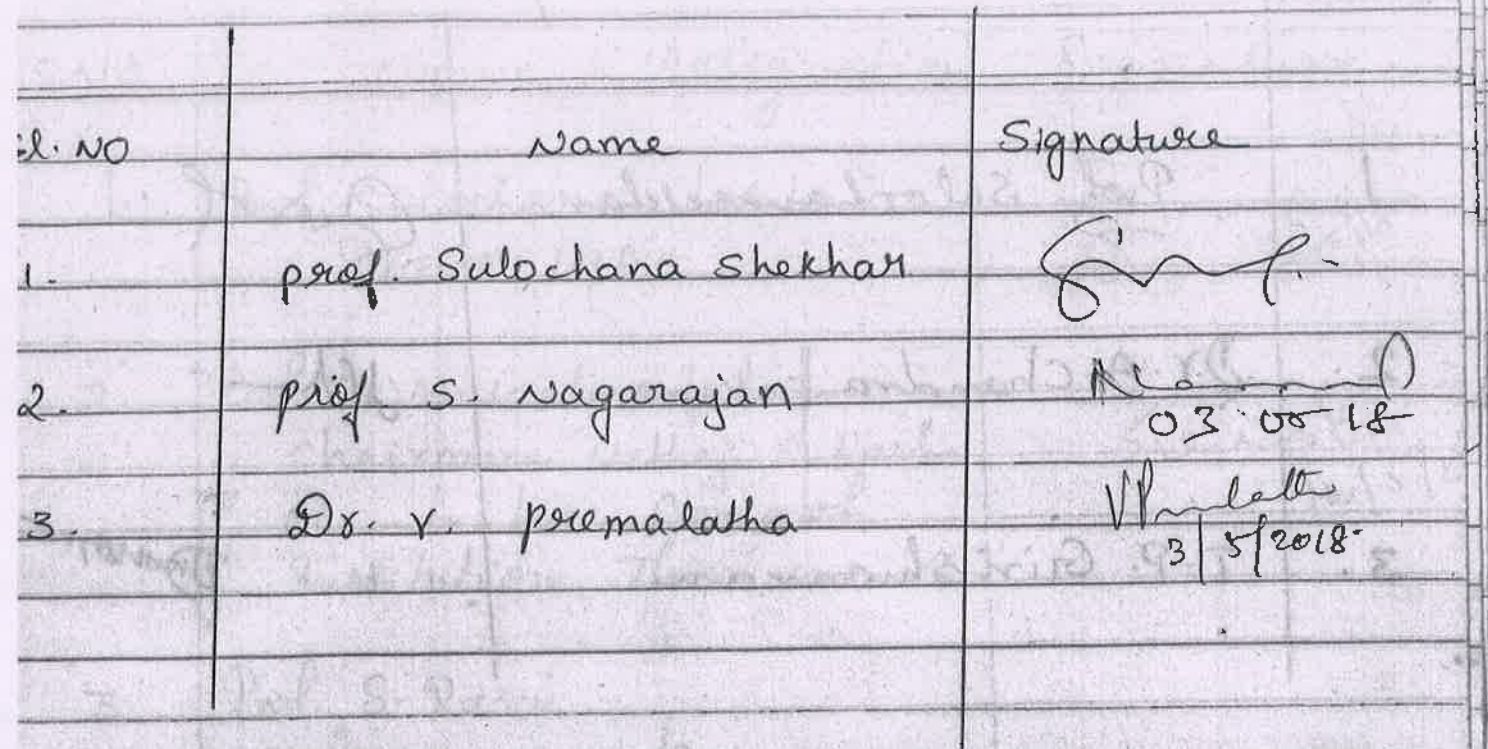 Sl. NO Name Signature
1. prof. Sulochana Shekhar
2. prof S. Nagarajan
03 05 18
3. Dr. V. premalatha VPremalatha
3/5/2018.